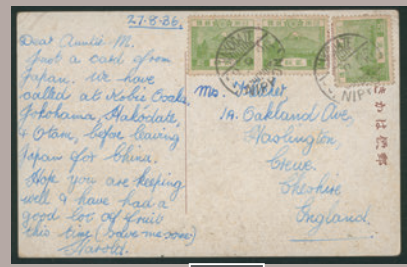 27.8.36.
Dear Auntie M.
Just a card from
Japan. We have
called at Kobe Osaka
Yokohama, Hakodate,
& Otaru, before leaving
Japan for China.
Hope you are keeping
well & have had a
good lot of fruit
this time (save me some)
Harold.
Mrs.
1A. Oakland Ave,
Haslington,
Crewe.
Cheshire
England.
HAKODATE
NIPPON
きかは便郵